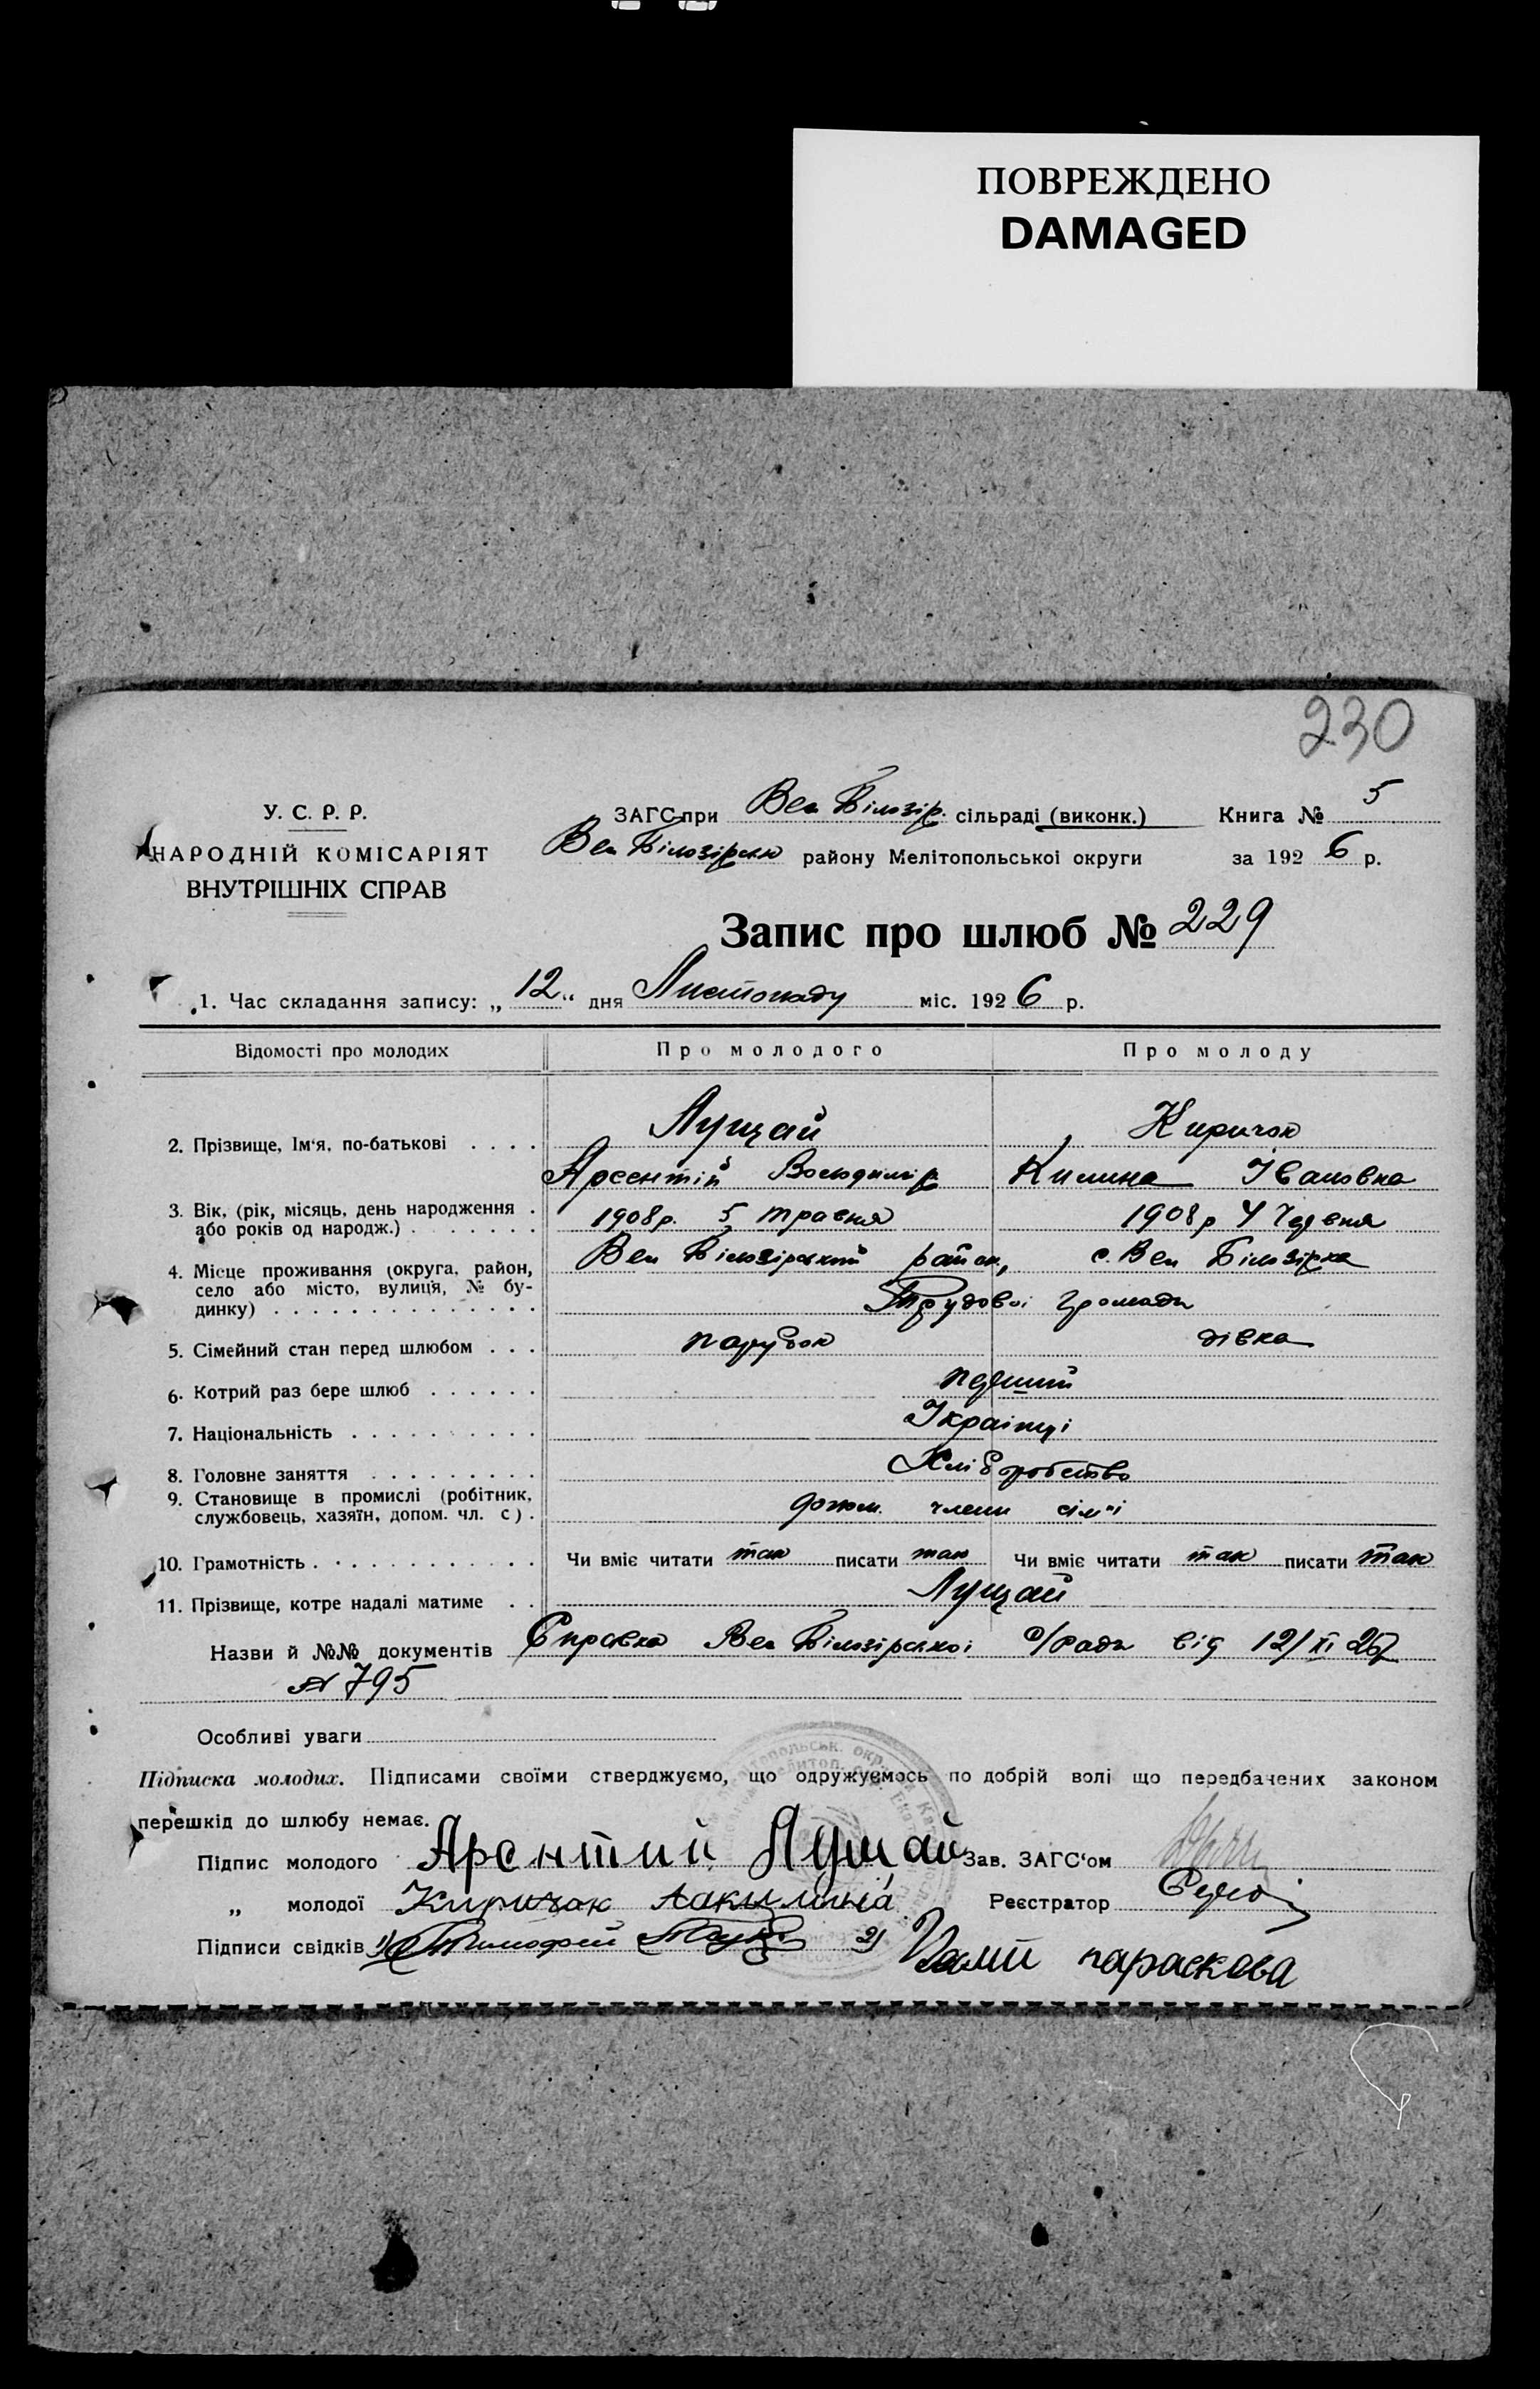 ПОВРЕЖДЕНО
DAMAGED
230
У. С. Р. Р.
НАРОДНІЙ КОМІСАРІЯТ
ВНУТРІШНІХ СПРАВ
ЗАГС при Вел Білозір. сільраді (виконк.) Книга № 5
Вел Білозірськ району Мелітопольської округи за 1926 р.
Запис про шлюб № 229
1. Час складання запису: „12“ дня Листопаду міс. 1926 р.
Відомості про молодих Про молодого Про молоду
2. Прізвище, Ім‘я, по-батькові . . . . Лущай Киричок
Арсентій Володимір Килина Івановна
3. Вік, (рік, місяць, день народження . 1908р. 5 травня 1908р 4 Червня
або років од народж.) . . . . . . .
4. Місце проживання (округа, район, Вел Білозірський район, с. Вел Білозірка
село або місто, вулиця, № бу-
динку) . . . . . . . . . . . . . . Трудової громади
5. Сімейний стан перед шлюбом . . . парубок дівка
6. Котрий раз бере шлюб . . . . . . перший
7. Національність . . . . . . . . . . Українці
8. Головне заняття . . . . . . . . . Хліборобство
9. Становище в промислі (робітник,
службовець, хазяїн, допом. чл. с) . допом. члени сім'ї
10. Грамотність . . . . . . . . . . . . Чи вміє читати так писати так Чи вміє читати так писати так
11. Прізвище, котре надалі матиме . . Лущай
Назви й №№ документів Справка Вел Білозірської с/ради від 12/XI 26
№ 795
Особливі уваги
Підписка молодих. Підписами своїми стверджуємо, що одружуємось по добрій волі що передбачених законом
перешкід до шлюбу немає.
Підпис молодого Арснтий Лущай Зав. ЗАГС‘ом
„ молодої Киричок Акилина Реєстратор
Підписи свідків 1) Тимофей 2) параскова